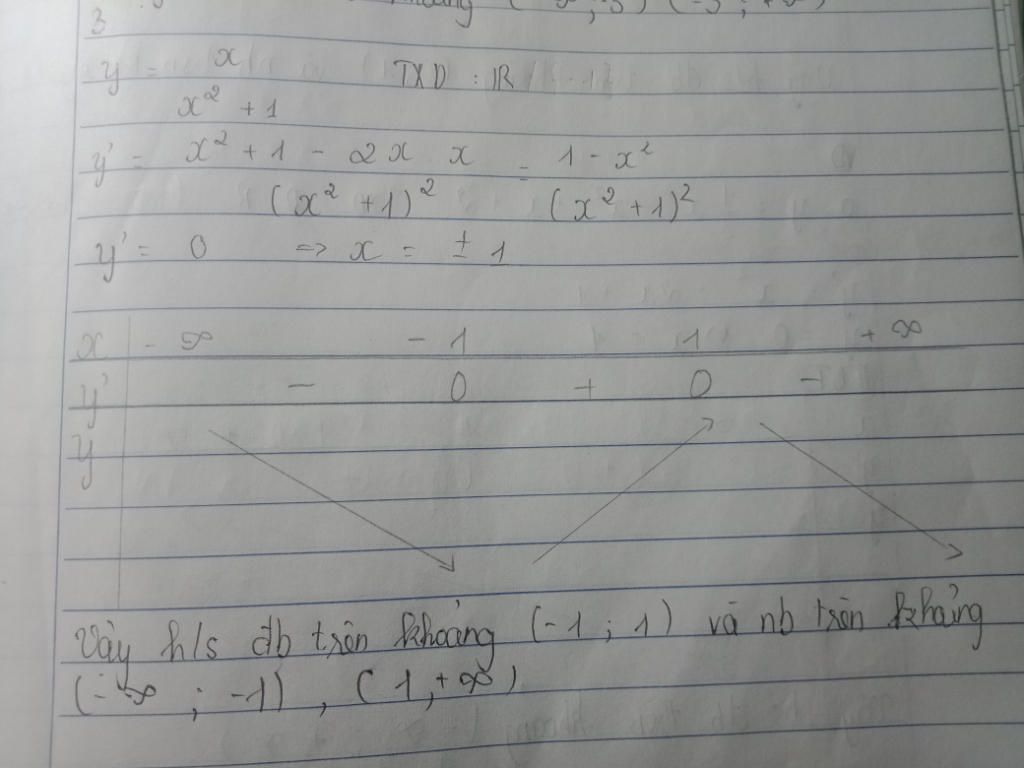 3
y = x TXD : R
x² + 1
y' = x² + 1 - 2x x = 1 - x²
(x² + 1)² (x² + 1)²
y' = 0 => x = ± 1
x - ∞ - 1 1 + ∞
y' - 0 + 0 -
y
Vậy h/s đb trên khoảng (-1 ; 1) và nb trên khoảng
(- ∞ ; -1) , (1, +∞)